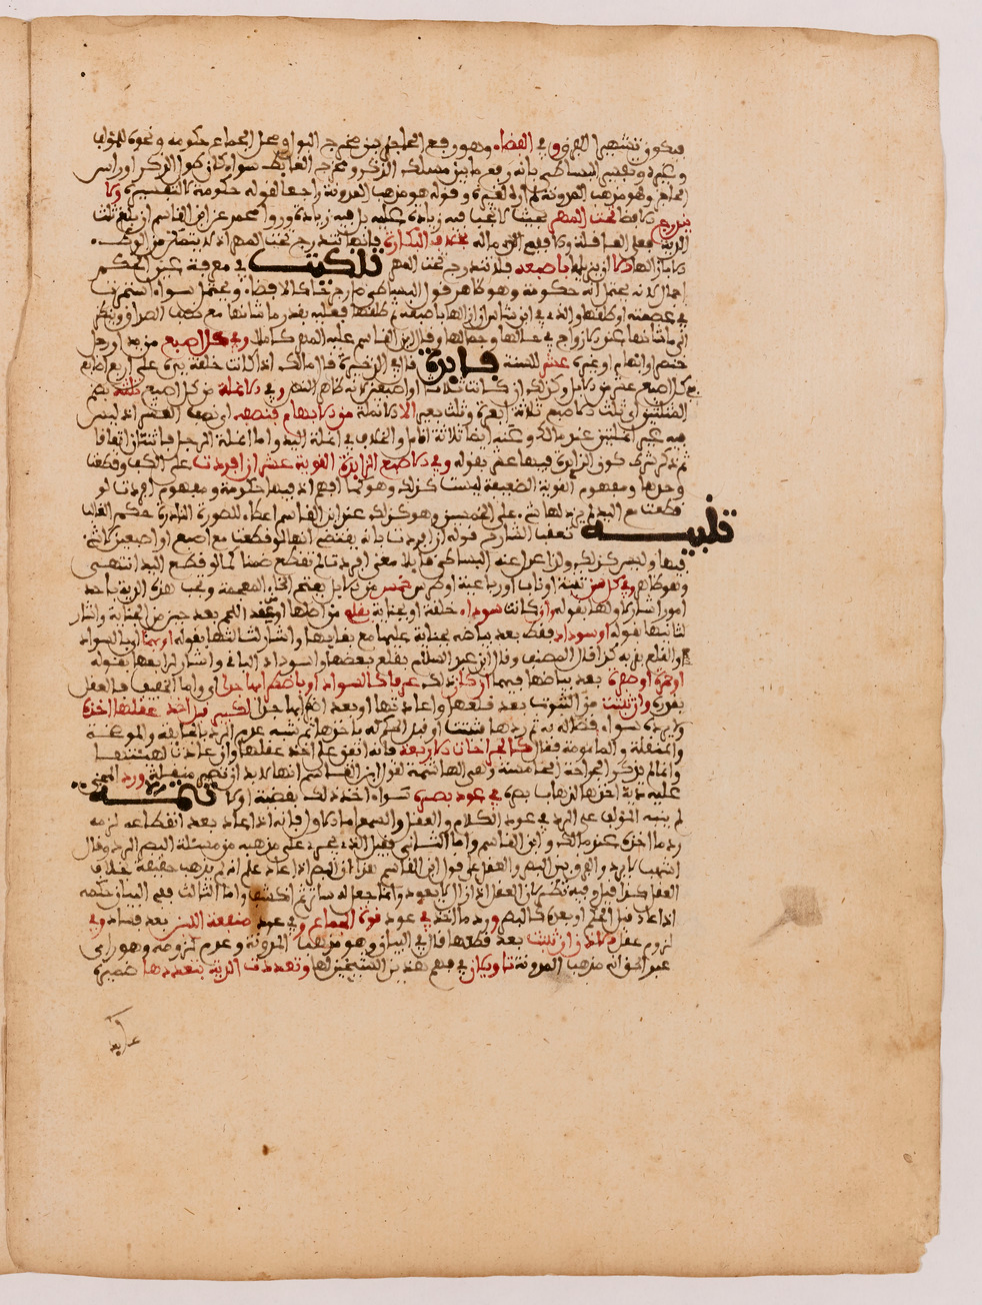 فيكون تشبيها والفرق وفي الافضاء وهو رفع الحاجز بين مخرج البول ومحل الجماع حكومة ونحوه للمؤلف
وغيره وتفسير البساطي بانه رفع ما بين مسلك الذكر ومخرج الغايط سواء كان طول الذكر او راس
الحاجز وهو مذهب المدونة لم اره لغيره وقوله هو مذهب المدونة راجعا لقوله حكومة لا لتفسيره ولا
يندرج الافضا تحت المهر بحيث لا يجب فيه زيادة عليه بل فيه زيادة وروى محمد عن ابن القاسم ان بلغ ثلث
الدية فعلى العاقلة والا ففي ماله بخلاف البكارة فانها تندرج تحت المهر اذ لا ينفك من الوطء
لا بازالتها الا ان يزيلها باصبعه فلا تندرج تحت المهر تنكيت في معرفة عين الحكم
اجمال لانه يحتمل انه حكومة وهو ظاهر قول البساطي ما رجح في الافضاء ويحتمل سواء استمرت
في عصمته او طلقها والذي في ابن شاس ان ازالها باصبعه ثم طلقها فعليه بقدر ما شانها مع نصف الصداق وينظر
الى ما شانها عند الازواج في حالها وجمالها وقال ابن القاسم عليه المهر كاملا وفي كل اصبع من يد او رجل
خنصر او ابهام او غيره عشر للسنة فايدة قال في الذخيرة قال مالك اذا كانت خلقة يده على اربع اصابع
ففي كل اصبع عشر من الابل وكذلك ان كانت ثلاث او اصبعين لانه ظاهر النص وفي الانملة من كل اصبع ثلثه بضم
المثلثين اي ثلث الاصبع ثلاثة ابعرة وثلث بعير الا الانملة من الابهام فنصفه اي نصف العشر اذ ليس
فيه غير انملتين عند مالك وعنه ايضا ثلاثة انامل والخلاف في انملة اليد واما انملة الرجل فاثنتان اتفاقا
ثم ذكر شرط كون الزايدة فيها عشر بقوله وفي الاصبع الزايدة القوية عشر ان افردت على الكف وقطعت
وحدها ومفهوم القوية الضعيفة ليست كذلك وهو كما افهم اذ فيها حكومة ومفهوم افردت لو
قطعت مع اليد لم يزد لها شيء على الخمسين وهو كذلك عند ابن القاسم اعطاء للصورة النادرة حكم الغالب
تنبيه تعقب الشارح قوله ان افردت بانه يقتضي انها لو قطعت مع اصبع او اصبعين لا شيء
فيها وليس كذلك ولذا عدل عنه البساطي قايلا معنى افردت لم تقطع ضمنا كما لو قطع اليد انتهى
وهو ظاهر وفي كل سن ثنية او ناب او رباعية او ضرس خمس من الابل بفتح الخاء المعجمة وتجب هذه الدية باحد
امور اشار لاولها بقوله وان كانت سوداء خلقة او بجناية بقلع من اصلها او عقد اللحم بعد جبر من الجناية واشار
لثانيها بقوله او سوداء فقط بعد بياضه بجناية عليها مع بقايها واشار لثالثها بقوله او بهما اي بالسواد
والقلع بمرة كذا قال المصنف وقال ابن عبد السلام بقلع بعضها واسوداد الباقي واشار لرابعها بقوله
او بحمرة او صفرة بعد بياضها فيهما ان كان ذلك عرفا كالسواد او باضطرابها جدا او واما الخفيف فالعقل
بقدره وان ثبتت من الثبوت بعد قلعها واعادتها او بعد اضطرابها جدا لكبير قبل اخذ عقلها اخذه
ولا يرده سواء قضى له به ثم ردها فثبتت او قبل الحكم له باخذها ثم شبه عدم الرد بالجايفة والموضحة
والمنقلة والمامومة فقال كالجراحات الاربعة فانه اتفق على اخذ عقلها وان عادت لهيئتها
وانما لم يذكر الجراحة الخامسة وهي الهاشمة لقول ابن القاسم انها لا بد ان تصير منقلة ورد المجني
عليه دية اخذها لذهاب بصره في عود بصره سواء اخذ ذلك بقضية او لا تتمة
لم ينبه المؤلف على الرد في عود الكلام والعقل والسمع اما الاول فانه اذا عاد بعد انقطاعه لزمه
رد ما اخذه عند مالك وابن القاسم واما الثاني فقيل الذي يجري على مذهبه من مسئلة البصر الرد وقال
اشهب لا يرد والفرق بين البصر والعقل على قول ابن القاسم هذا ان البصر اذا عاد علم انه لم يذهب حقيقة بخلاف
العقل كذا قيل وفيه نظر لان العقل اذا زال لا يعود وانما جعل له ساتر ثم انكشف واما الثالث ففي البيان حكمه
اذا عاد قبل الحكم او بعده كالبصر ورد ما اخذ في عود قوة الجماع وفي عود منفعة اللبن بعد فساده وفي
لزوم عقل الاذن ان ثبتت بعد قطعها قال في البيان وهو مذهب المدونة وعدم لزومه وهو راي
غير الجواب مذهب المدونة تاويلان في فهم هذين الشيخين لها وتعددت الدية بتعددها ضميره